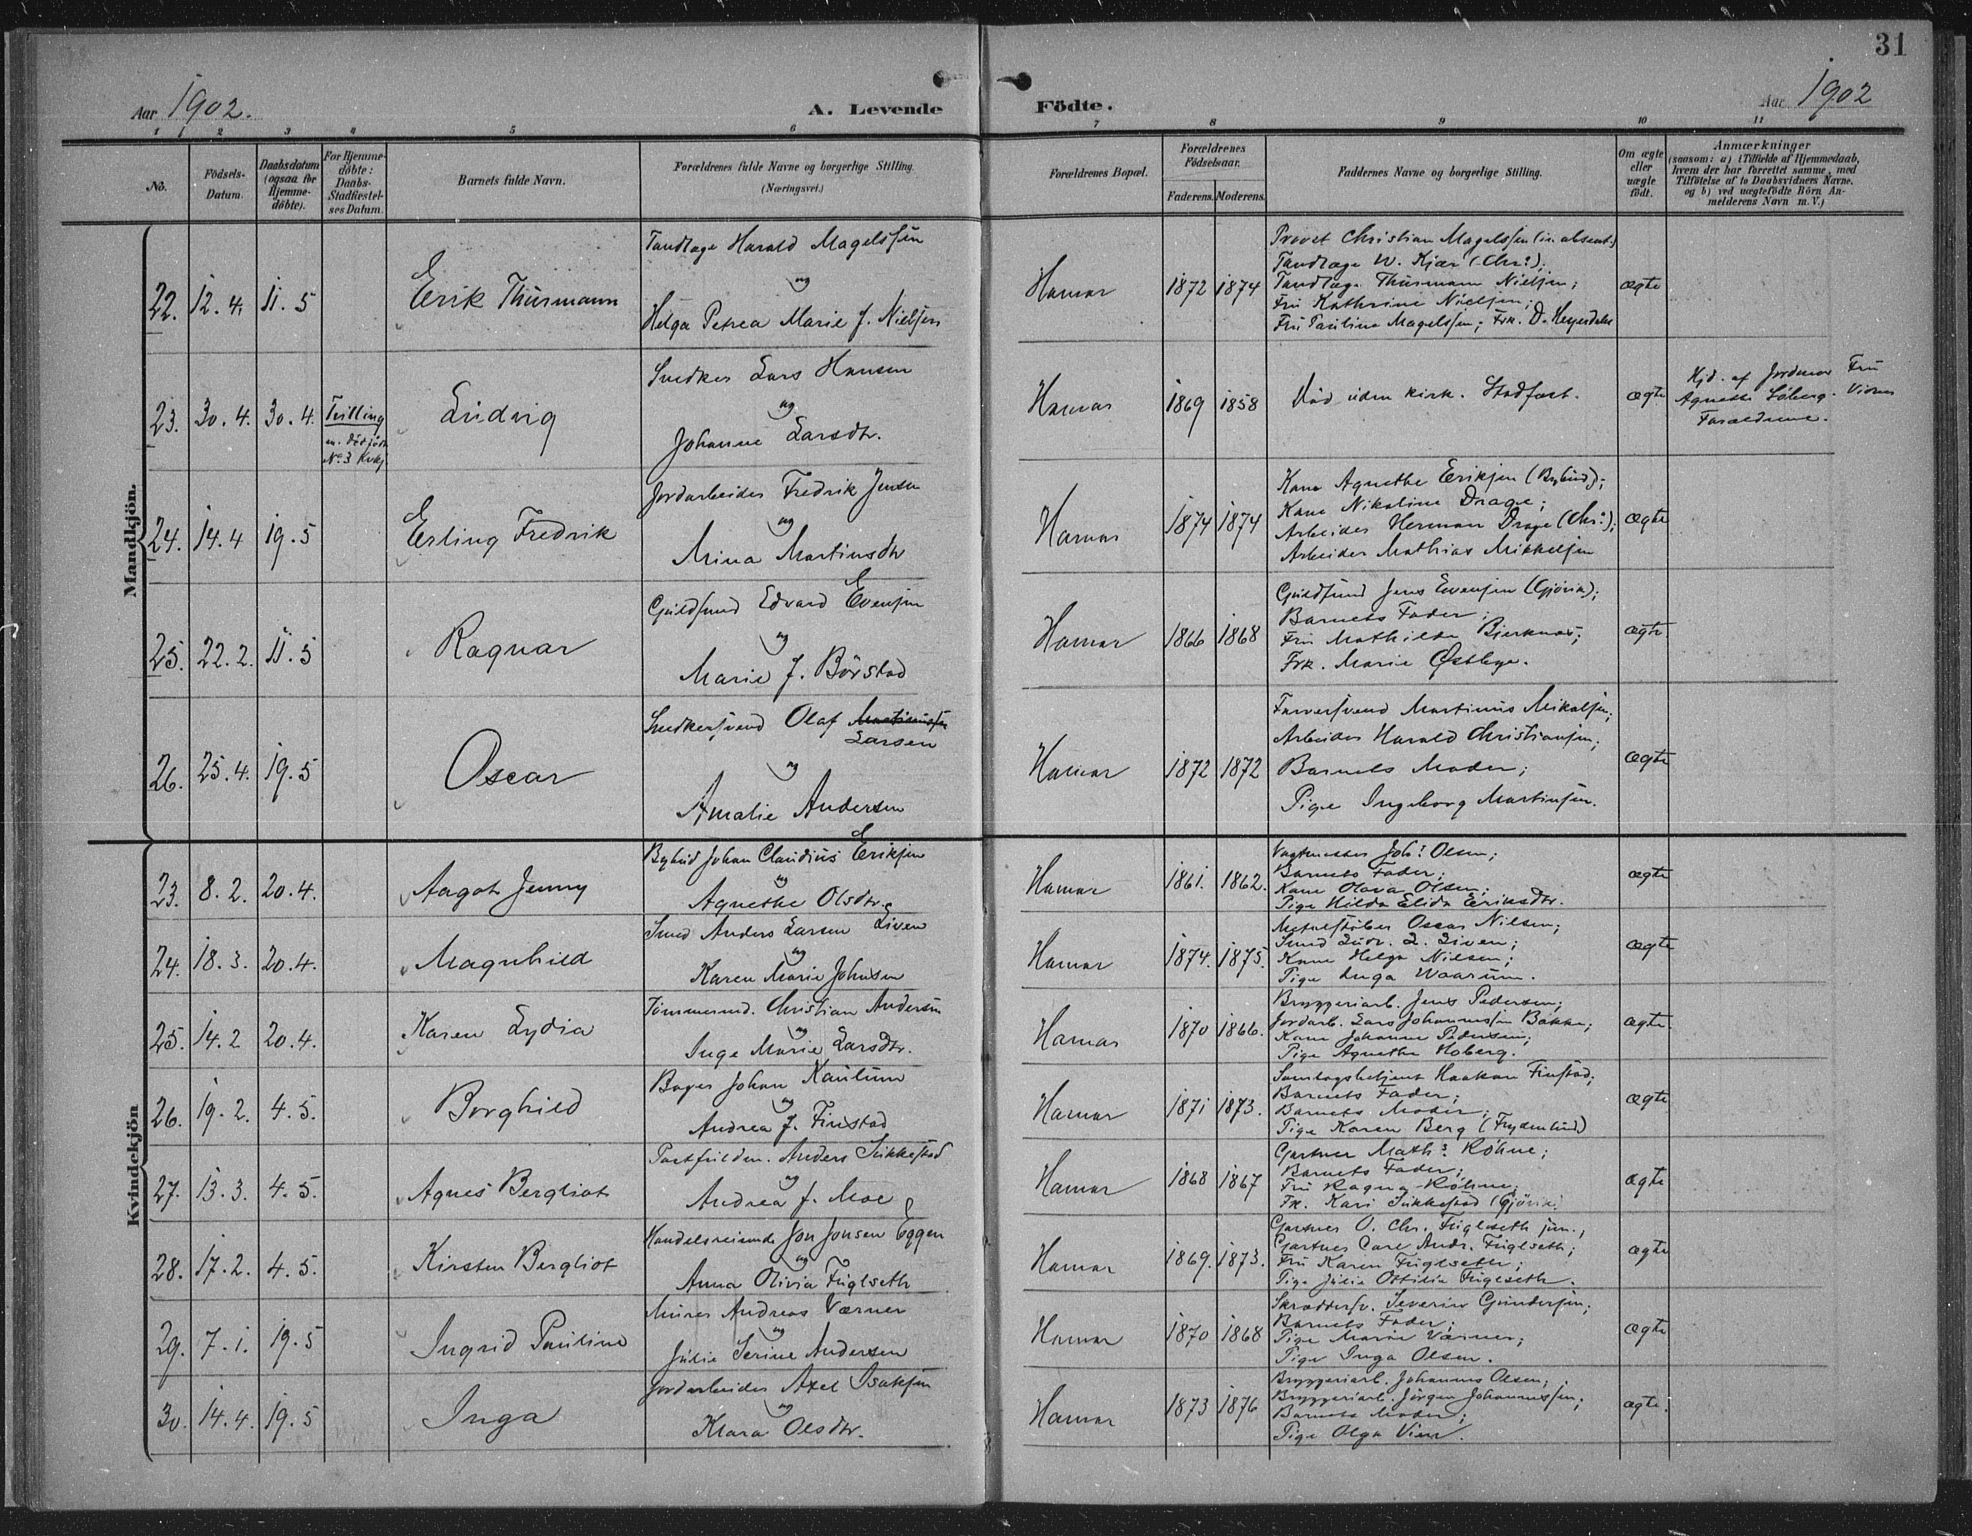 31
Aar 1902.
A. Levende
Födte.
Aar 1902
1 2 3 4 5 6 7 8 9 10 11
No.
Födsels-
Datum.
Daabsdatum
(ogsaa for
Hjemme-
döbte).
For Hjemme-
döbte:
Daabs-
Stadfæstel-
ses Datum.
Barnets fulde Navn.
Forældrenes fulde Navne og borgerlige Stilling.
(Næringsvei.)
Forældrenes Bopæl.
Forældrenes
Födselsaar.
Faderens. Moderens.
Faddernes Navne og borgerlige Stilling.
Om ægte
eller
uægte
födt.
Anmærkninger
(saasom: a) i Tilfælde af Hjemmedaab,
hvem der har forrettet samme, med
Tilföielse af to Daabsvidners Navne,
og b) ved uægtefödte Börn An-
melderens Navn m. V.)
Mandkjön.
22. 12.4. 11.5 Erik Thurmann
Tandlæge Harald Magelssen
og
Helga Petrea Marie J. Nielsen
Hamar 1872 1874
Provst Christian Magelssen (in absent.)
Tandlæge W. Kjær (Chr:);
Tandlæge Thurmann Nielsen;
Fru Kathrine Nielsen;
Fru Pauline Magelssen; Frk. D. Heyerdahl
ægte
23. 30.4. 30.4. Tvilling
m. dödfödt
No 3 Kvkj
Ludvig
Snedker Lars Hansen
og
Johanne Larsdtr.
Hamar 1869 1858
Död uden kirk. Stadfæst.
ægte
Hjd. af Jordmor Fru
Agnethe Söberg. Vidner
Forældrene.
24. 14.4 19.5 Erling Fredrik
Jordarbeider Fredrik Jensen
og
Mina Martinsdtr
Hamar 1874 1874
Kone Agnethe Eriksen (Bybud);
Kone Nikoline Drage;
Arbeider Herman Drage (Chr:);
Arbeider Mathias Mikkelsen
ægte
25. 22.2. 11.5 Ragnar
Guldsmed Edvard Evensen
og
Marie J. Börstad
Hamar 1866 1868
Guldsmed Jens Evensen (Gjövik);
Barnets Fader;
Fru Mathilde Bjerknæs;
Frk. Marie Østbye.
ægte
26. 25.4. 19.5 Oscar
Snedkersvend Olaf Martinussen
Larsen
og
Amalie Andersen
Hamar 1872 1872
Farversvend Martinus Mikalsen;
Arbeider Harald Christiansen;
Barnets Moder;
Pige Ingeborg Martinsen.
ægte
Kvindekjön
23. 8.2. 20.4. Aagot Jenny
Bybud Johan Claudius Eriksen
og
Agnethe Olsdtr.
Hamar 1861. 1862.
Vagtmester Joh: Olsen;
Barnets Fader;
Kone Olava Olsen;
Pige Hilda Elida Eriksdtr.
ægte
24. 18.3. 20.4. Magnhild
Smed Anders Larsen Liven
og
Karen Marie Johnsen
Hamar 1874. 1875.
Metalstøber Oscar Nilsen;
Smed Ludv. L. Liven;
Kone Helga Nilsen;
Pige Inga Waarum.
ægte
25. 14.2 20.4. Karen Lydia
Tömmermd. Christian Andersen
og
Inge Marie Larsdtr.
Hamar 1870 1866.
Bryggeriarb. Jens Pedersen;
Jordarb. Lars Johannessen Bakke;
Kone Johanne Pedersen;
Pige Agnethe Hoberg.
ægte.
26. 19.2. 4.5. Borghild
Bager Johan Kaulum
og
Andrea J. Finstad
Hamar 1871 1873.
Samlagsbetjent Haakon Finstad;
Barnets Fader;
Barnets Moder;
Pige Karen Berg (Frydenlund)
ægte
27. 13.3. 4.5. Agnes Bergliot
Postfuldm. Anders Sukkestad
og
Andrea J. Moe
Hamar 1868 1867
Gartner Math: Köhne;
Barnets Fader;
Fru Ragna Köhne;
Fk. Kari Sukkestad (Gjövik).
ægte
28. 17.2. 4.5. Kirsten Bergliot
Handelsreisende Jon Jonsen Eggen
og
Anna Olivia Fuglseth
Hamar 1869. 1873.
Gartner O. Chr. Fuglseth jun.;
Gartner Carl Andr. Fuglseth;
Fru Karen Fuglseth;
Pige Julie Ottilie Fuglseth.
ægte
29. 7.1. 19.5 Ingrid Pauline
Murer Andreas Værner
og
Julie Serine Andersen
Hamar 1870 1868
Skræddersv. Severin Gundersen;
Barnets Fader;
Pige Marie Værner;
Pige Inga Olsen.
ægte
30. 14.4. 19.5 Inga
Jordarbeider Axel Isaksen
og
Klara Olsdtr.
Hamar 1873 1876
Bryggeriarb. Johannes Olsen;
Bryggeriarb. Jörgen Johannessen;
Barnets Moder;
Pige Olga Vien.
ægte.